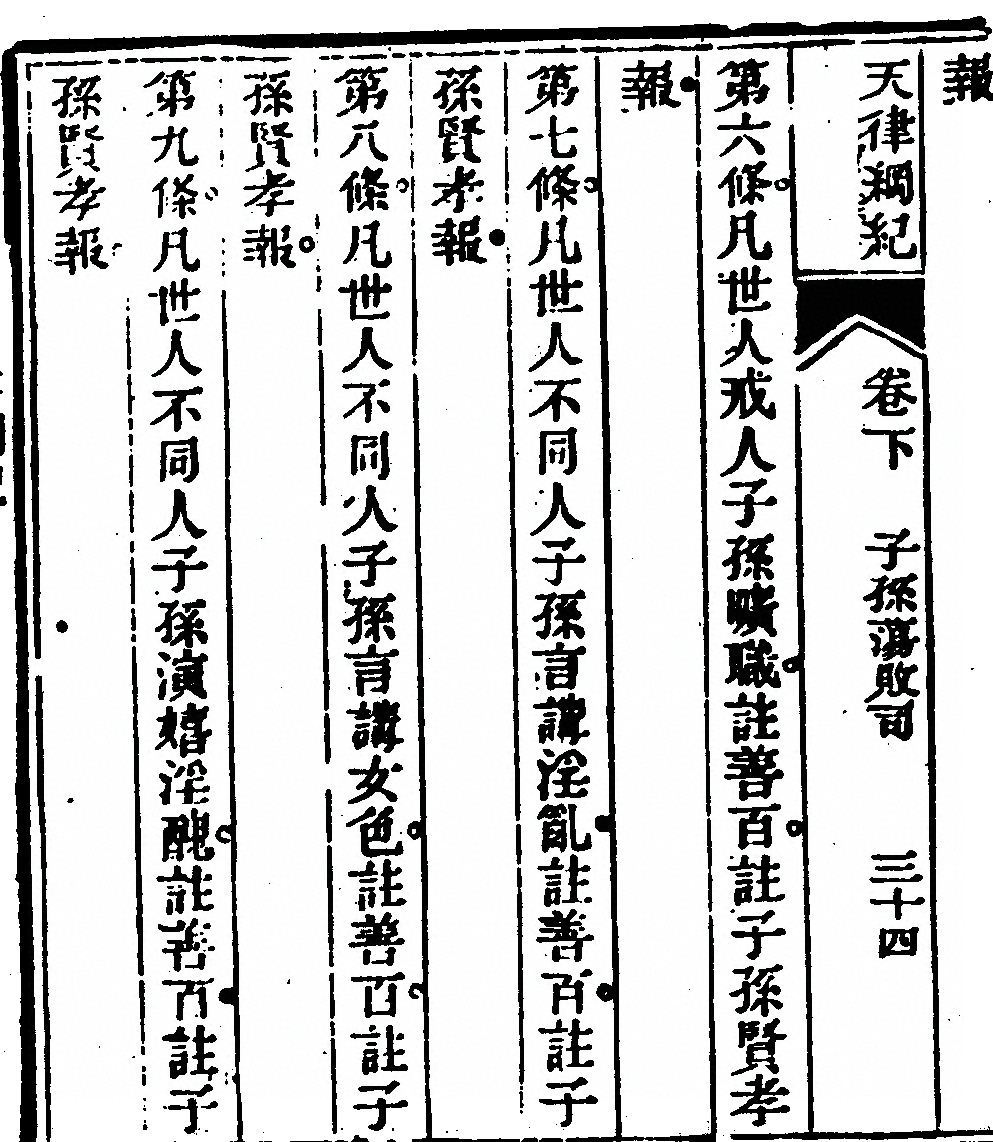 報
天律綱紀 卷下 子孫蕩敗司 三十四
第六條凡世人戒人子孫曠職註善百註子孫賢孝
報
第七條凡世人不同人子孫言講淫亂註善百註子
孫賢孝報
第八條凡世人不同人子孫言講女色註善百註子
孫賢孝報
第九條凡世人不同人子孫演嬉淫醜註善百註子
孫賢孝報